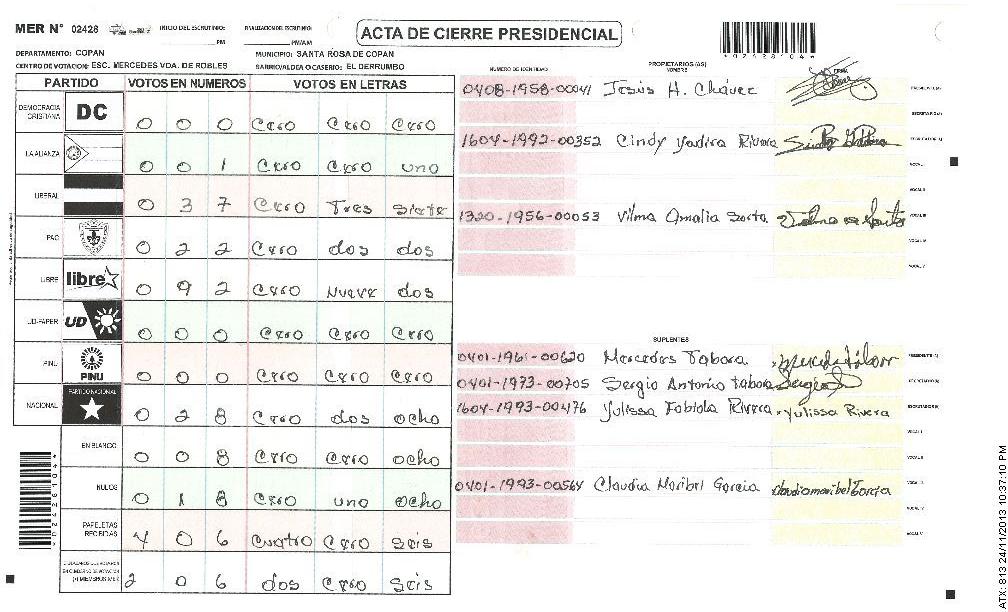 MER N° 02428
INICIO DEL ESCRUTINIO:
PM
FINALIZACION DEL ESCRUTINIO:
PM/AM
ACTA DE CIERRE PRESIDENCIAL
*02428104*
DEPARTAMENTO: COPAN
MUNICIPIO: SANTA ROSA DE COPAN
CENTRO DE VOTACION: ESC. MERCEDES VDA. DE ROBLES
BARRIO/ALDEA O CASERIO: EL DERRUMBO
PARTIDO VOTOS EN NUMEROS VOTOS EN LETRAS
DEMOCRACIA CRISTIANA DC 0 0 0 Cero Cero Cero
LA ALIANZA 0 0 1 Cero Cero uno
LIBERAL 0 3 7 Cero Tres Siete
PAC 0 2 2 Cero dos dos
LIBRE libre 0 9 2 Cero Nueve dos
UD-FAPER UD 0 0 0 Cero Cero Cero
PINU PINU 0 0 0 Cero Cero Cero
NACIONAL PARTIDO NACIONAL 0 2 8 Cero dos Ocho
EN BLANCO 0 0 8 Cero Cero Ocho
NULOS 0 1 8 Cero uno Ocho
PAPELETAS RECIBIDAS 4 0 6 Cuatro Cero Seis
CIUDADANOS QUE VOTARON EN CUADERNO DE VOTACION (+) MIEMBROS MER 2 0 6 dos Cero Seis
*02428104*
NUMERO DE IDENTIDAD PROPIETARIOS (AS) NOMBRE FIRMA
0408-1958-00041 Jesús H. Chávez PRESIDENTE (A)
SECRETARIO (A)
1604-1992-00352 Cindy Yadira Rivera ESCRUTADOR (A)
VOCAL I
VOCAL II
1320-1956-00053 Vilma Amalia VOCAL III
VOCAL IV
VOCAL V
SUPLENTES
0401-1961-00620 Mercedes Tabora PRESIDENTE (A)
0401-1973-00705 Sergio Antonio Tabora Sergio SECRETARIO (A)
1604-1993-00476 Yulissa Fabiola Rivera Yulissa Rivera ESCRUTADOR (A)
VOCAL I
VOCAL II
0401-1993-00564 Claudia Maribel Garcia Claudia maribel Garcia VOCAL III
VOCAL IV
VOCAL V
ATX: 813 24/11/2013 10:37:10 PM